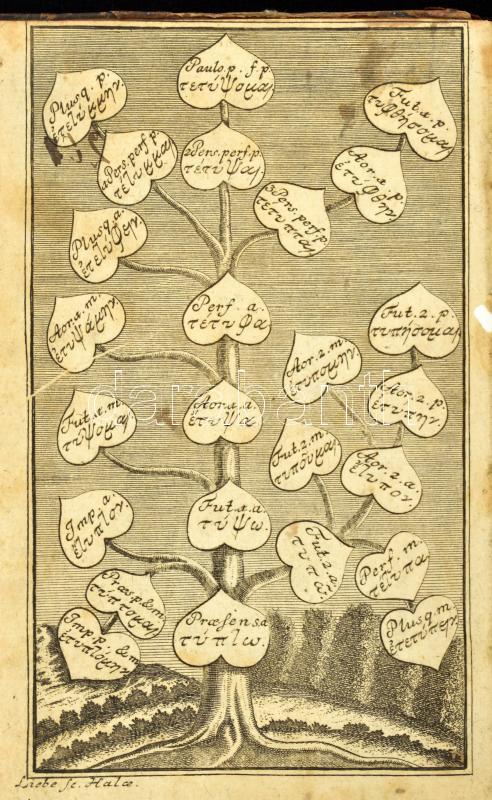 Paulo.p.f.p.
τετύψομαι
Plusq.p.
ἐτετύμμην.
Fut.1.p.
τυφθήσομαι
1Pers.perf.p.
τέτυμμαι
2Pers.perf.p.
τέτυψαι
Aor.1.p.
ἐτύφθην.
3Pers.perf.p.
τέτυπται
Plusq.a.
ἐτετύφειν.
Perf.a.
τέτυφα
Aor.1.m.
ἐτυψάμην.
Fut.2.p.
τυπήσομαι
Aor.2.m.
ἐτυπόμην.
Aor.2.p.
ἐτύπην.
Aor.1.a.
ἔτυψα
darabanth
Fut.1.m.
τύψομαι
Fut.2.m.
τυποῦμαι
Aor.2.a.
ἔτυπον.
Fut.1.a.
τύψω.
Imp.a.
ἔτυπτον.
Fut.2.a.
τυπῶ
Perf.m.
τέτυπα
Præs.p.&m.
τύπτομαι
Præsens.a
τύπτω.
Imp.p.&m.
ἐτυπτόμην
Plusq.m.
ἐτετύπειν.
Liebe sc. Halæ.